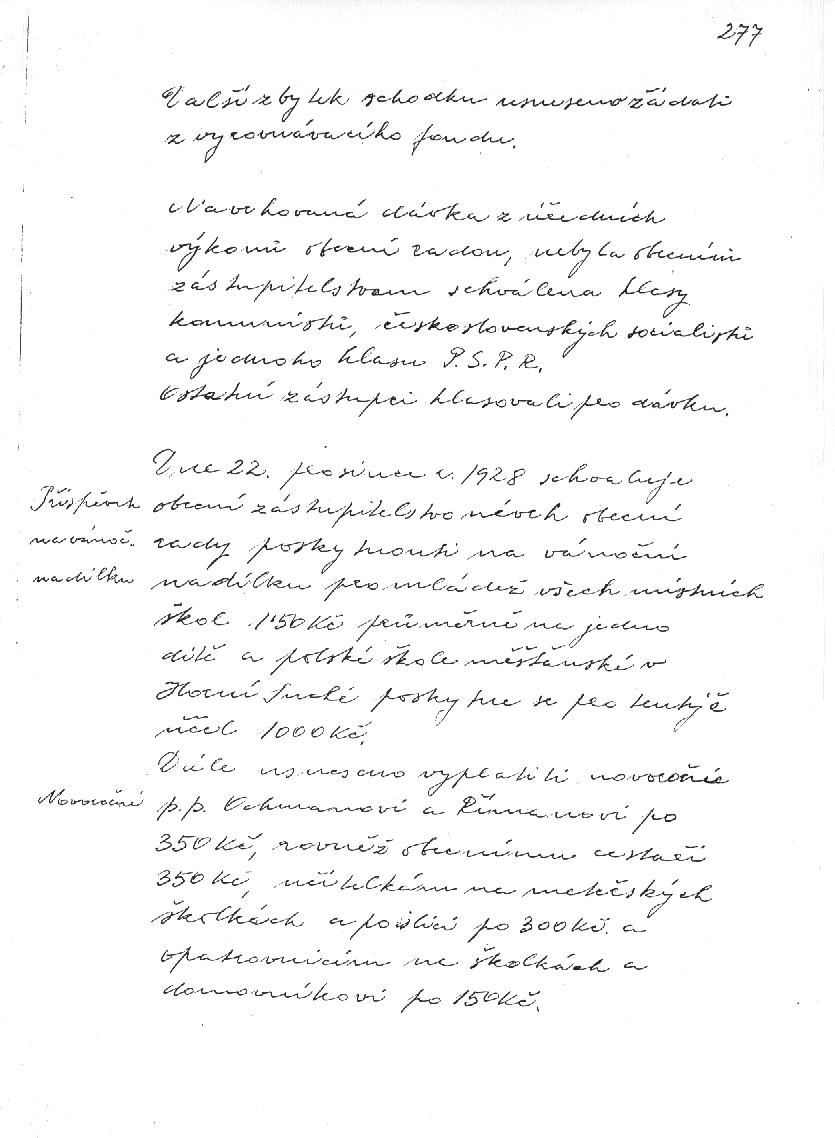 277
Další zbytek schodku usneseno žádati
z vyrovnávacího fondu.
Navrhovaná dávka z úředních
výkonů obecní radou, nebyla obecním
zástupitelstvem schválena hlasy
komunistů, československých socialistů
a jednoho hlasu P.S.P.R.
Ostatní zástupci hlasovali pro dávku.
Dne 22. prosince r. 1928 schvaluje
Příspěvek
obecní zástupitelstvo návrh obecní
na vánoč.
rady poskytnouti na vánoční
nadílku
nadílku pro mládež všech místních
škol 1'50 Kč průměrně na jedno
dítě a polské škole měšťanské v
Horní Suché poskytne se pro tentýž
účel 1000 Kč.
Dále usneseno vyplatiti novoročné
Novoročné
p.p. Ochmanovi a Římanovi po
350 Kč, rovněž obecnímu cestáři
350 Kč, učitelkám na mateřských
školkách a policii po 300 Kč. a
opatrovnicím ve školkách a
domovníkovi po 150 Kč.